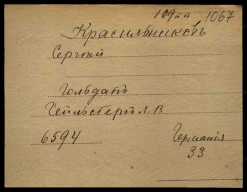 109пп 1067
Красильниковъ
Сергѣй
Гольдапъ
Гейльсбергъ Л. В
6594 Германія
33